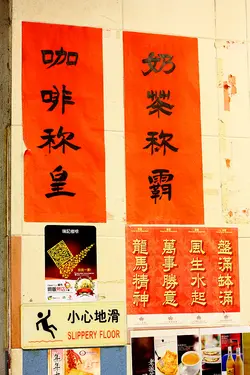 奶茶称霸
咖啡称皇
盤滿缽滿
風生水起
萬事勝意
龍馬精神
瑞記咖啡
小心地滑
SLIPPERY FLOOR